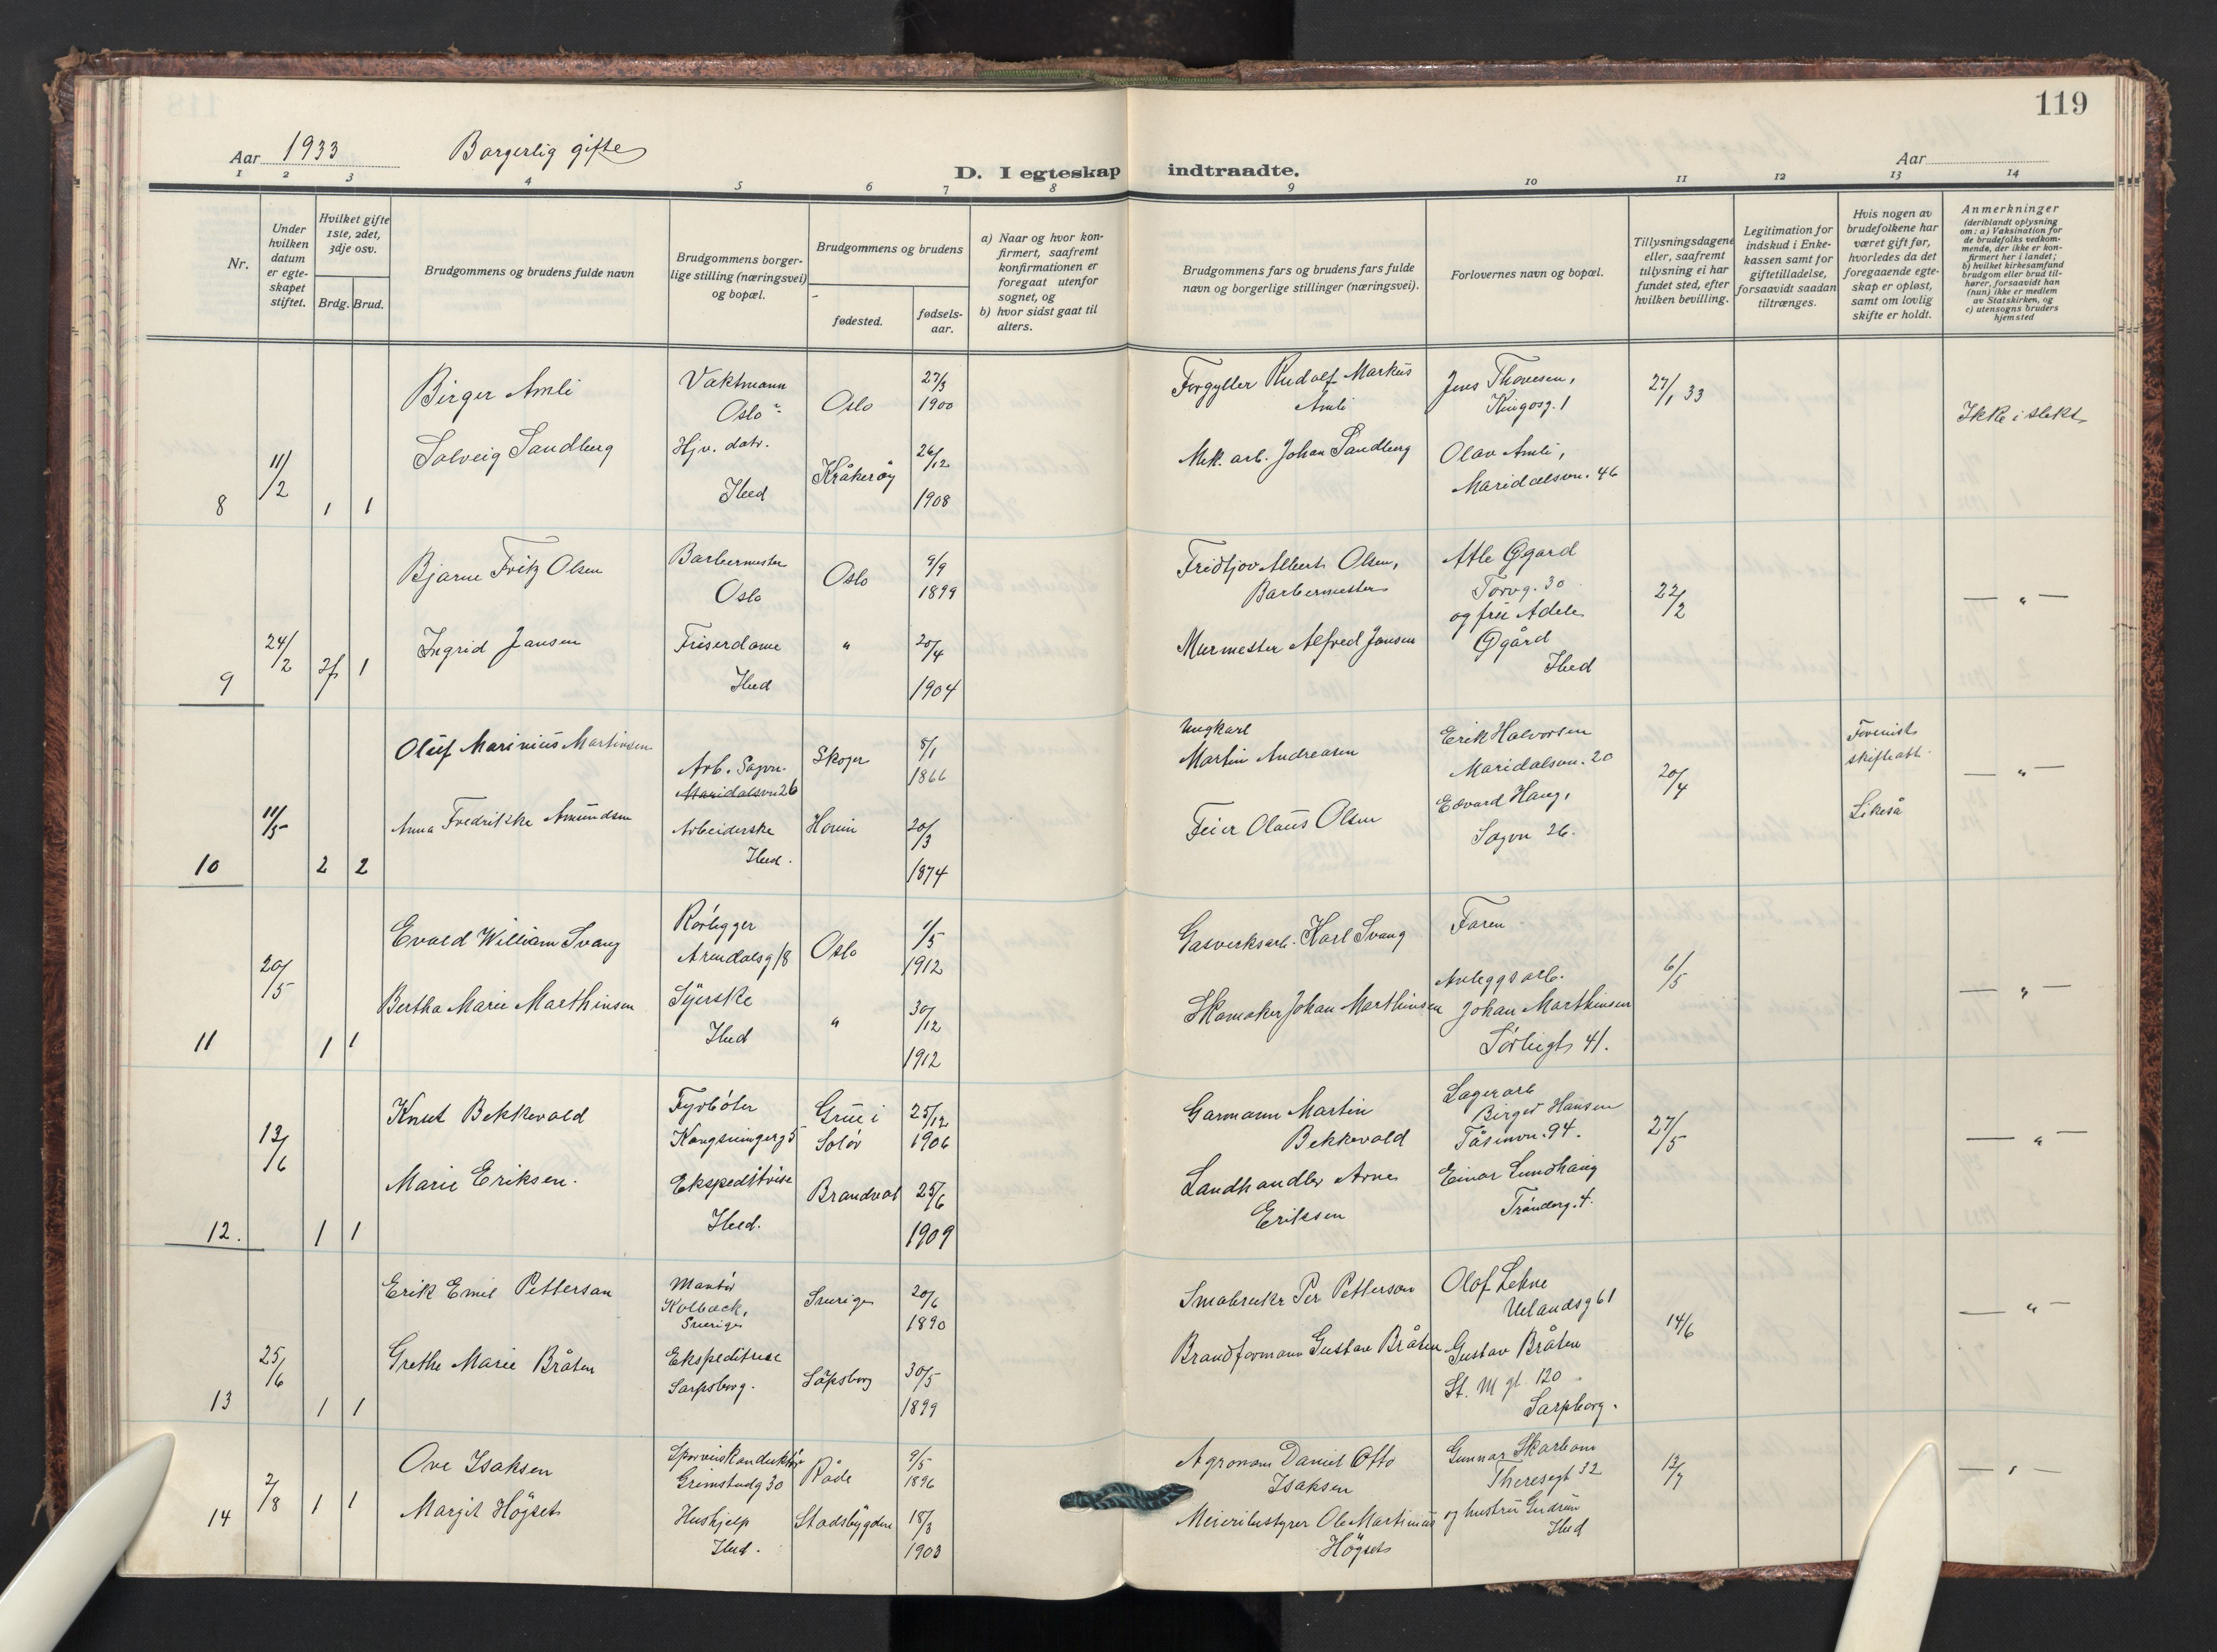 119
Aar 1933 Borgerlig gifte
D. I egteskap indtraadte.
Aar
1 2 3 4 5 6 7 8 9 10 11 12 13 14
Nr.
Under hvilken datum er egteskapet stiftet.
Hvilket gifte 1ste, 2det, 3dje osv.
Brdg. Brud.
Brudgommens og brudens fulde navn
Brudgommens borgerlige stilling (næringsvei) og bopæl.
Brudgommens og brudens
fødested.
fødselsaar.
a) Naar og hvor konfirmert, saafremt konfirmationen er foregaat utenfor sognet, og
b) hvor sidst gaat til alters.
Brudgommens fars og brudens fars fulde navn og borgerlige stillinger (næringsvei).
Forlovernes navn og bopæl.
Tillysningsdagene eller, saafremt tillysning ei har fundet sted, efter hvilken bevilling.
Legitimation for indskud i Enkekassen samt for giftetilladelse, forsaavidt saadan tiltrænges.
Hvis nogen av brudefolkene har været gift før, hvorledes da det foregaaende egteskap er opløst, samt om lovlig skifte er holdt.
Anmerkninger
(deriblandt oplysning om: a) Vaksination for de brudefolks vedkommende, der ikke er konfirmert her i landet; b) hvilket kirkesamfund brudgom eller brud tilhører, forsaavidt han (hun) ikke er medlem av Statskirken, og c) utensogns bruders hjemsted
8 11/2 1 1
Birger Amli Vaktmann Oslo Oslo 27/3 1900
Forgyller Rudolf Markus Amli
Jens Thoresen, Kingosg. 1
27/1 33
Ikke i slekt
Solveig Sandberg Hjv. datr. Ibid Kråkerøy 26/12 1908
Mek. arb. Johan Sandberg
Olav Amli, Maridalsvn. 46
9 24/2 2f 1
Bjarne Fritz Olsen Barbermester Oslo Oslo 9/9 1899
Fridtjov Albert Olsen, Barbermester
Atle Øgard Torvg. 30 og fru Adele Øgård Ibid
22/2
— " —
Ingrid Jansen Friserdame Ibid " 20/4 1904
Murmester Alfred Jansen
10 11/5 2 2
Oluf Marinius Martinsen Arb. Sagvn. Maridalsvn 26 Skoger 5/1 1866
Ungkarl Martin Andreasen
Erik Halvorsen Maridalsvn. 20
20/4
— " —
Anna Fredrikke Amundsen Arbeiderske Ibid. 20/3 1874
Feier Olaus Olsen
Edvard Haug, Sagvn 26.
Likeså
11 20/5 1 1
Evald William Svang Rørlegger Arendalsg 18 Oslo 1/5 1912
Gasverksarb. Karl Svang
Faren
6/5
— " —
Bertha Marie Marthinsen Syerske Ibid " 30/12 1912
Skomaker Johan Marthinsen
Anleggsarb. Johan Marthinsen 41.
12. 13/6 1 1
Knut Bekkevold Fyrbøter Kongsvingerg 5 Grue i Solør 25/12 1906
Garmann Martin Bekkevold
Lagerarb Birger Hansen Tåsenvn. 94.
27/5
— " —
Marie Eriksen. Ekspeditrise Ibid. Brandval 25/6 1909
Landhandler Arne Eriksen
Einar Lundhaug Trønderg. 4.
13 25/6 1 1
Erik Emil Petterson Montør Kolbäck, Sverige Sverige 20/6 1890
Småbruker Per Petterson
Olof Lehne Uelandsg 61
14/6
— " —
Grethe Marie Bråten Ekspeditrise Sarpsborg. Sarpsborg 30/5 1899
Brandformann Gustav Bråten
Gustav Bråten St. M gt. 120 Sarpborg.
14 2/8 1 1
Ove Isaksen Sporveiskonduktør Grimstadg 30 Råde 9/5 1896
Agronom Daniel Otto Isaksen
Gunnar Skarbom Theresegt 32
12/7
— " —
Margit Høgset Hushjelp Ibid. Stadsbygden 18/3 1903
Meieribestyrer Ole Martinius Høgset
og hustru Gudrun Ibid